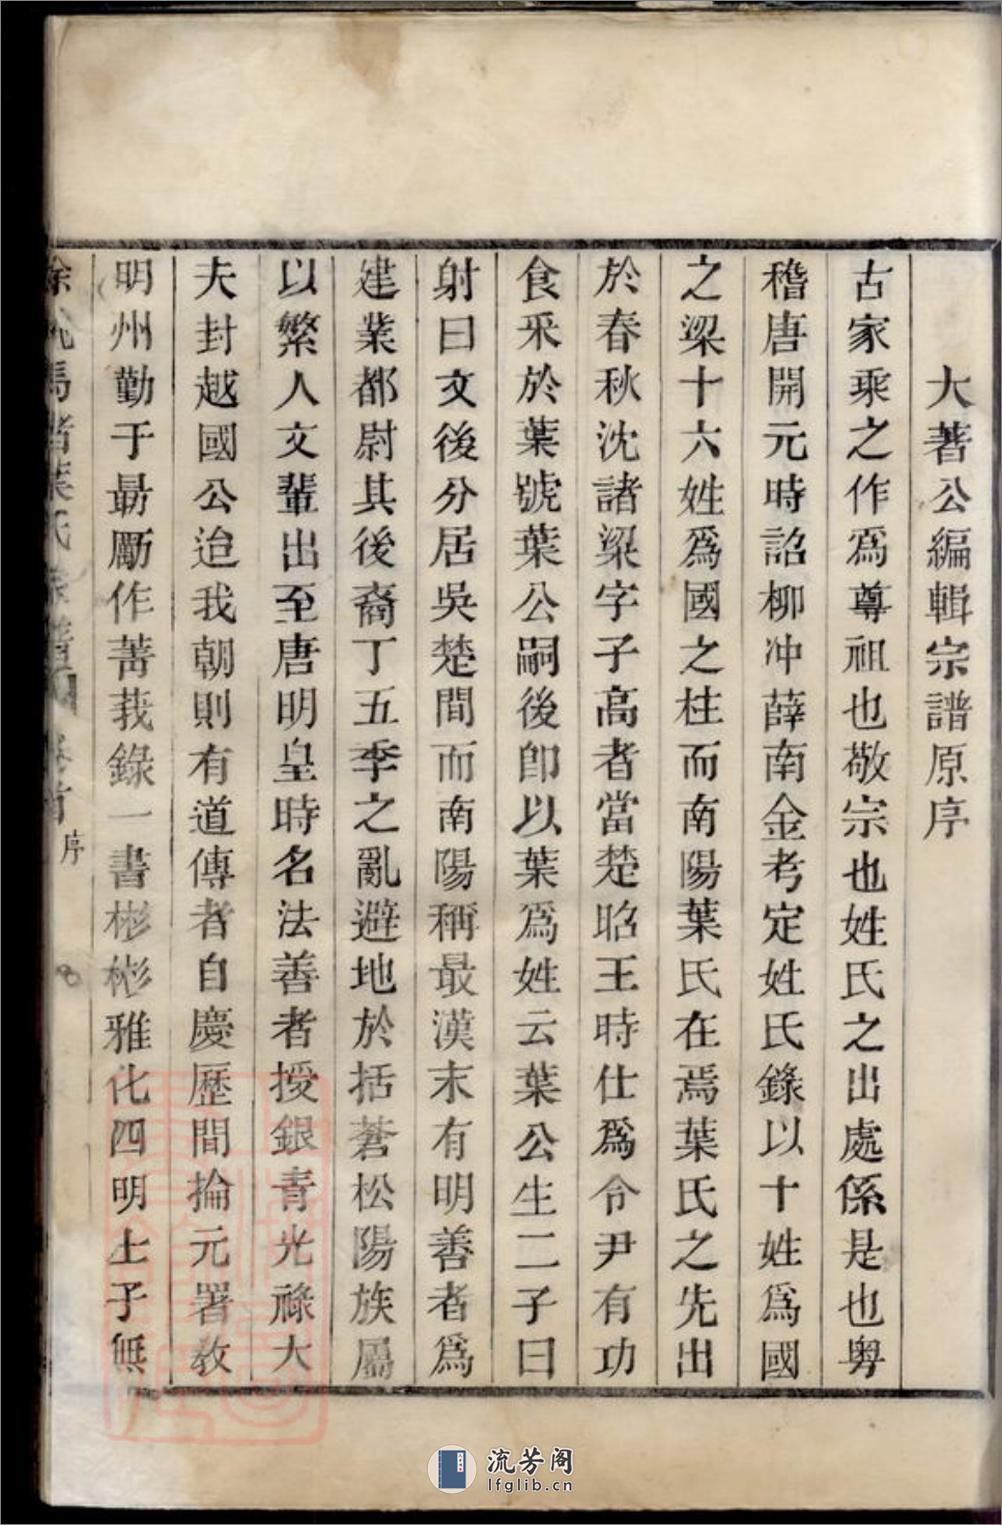 大著公編輯宗譜原序
古家乘之作爲尊祖也敬宗也姓氏之出處係是也粤
稽唐開元時詔柳冲薛南金考定姓氏錄以十姓爲國
之梁十六姓爲國之柱而南陽葉氏在焉葉氏之先出
於春秋沈諸梁字子高者當楚昭王時仕爲令尹有功
食采於葉號葉公嗣後卽以葉爲姓云葉公生二子曰
射曰文後分居吳楚間而南陽稱最漢末有明善者爲
建業都尉其後裔丁五季之亂避地於括蒼松陽族屬
以繁人文輩出至唐明皇時名法善者授銀青光祿大
夫封越國公迨我朝則有道傳者自慶歷間掄元署教
明州勤于勗勵作菁莪錄一書彬彬雅化四明士子無
馬 葉氏 卷首 序
流芳阁
lfglib.cn